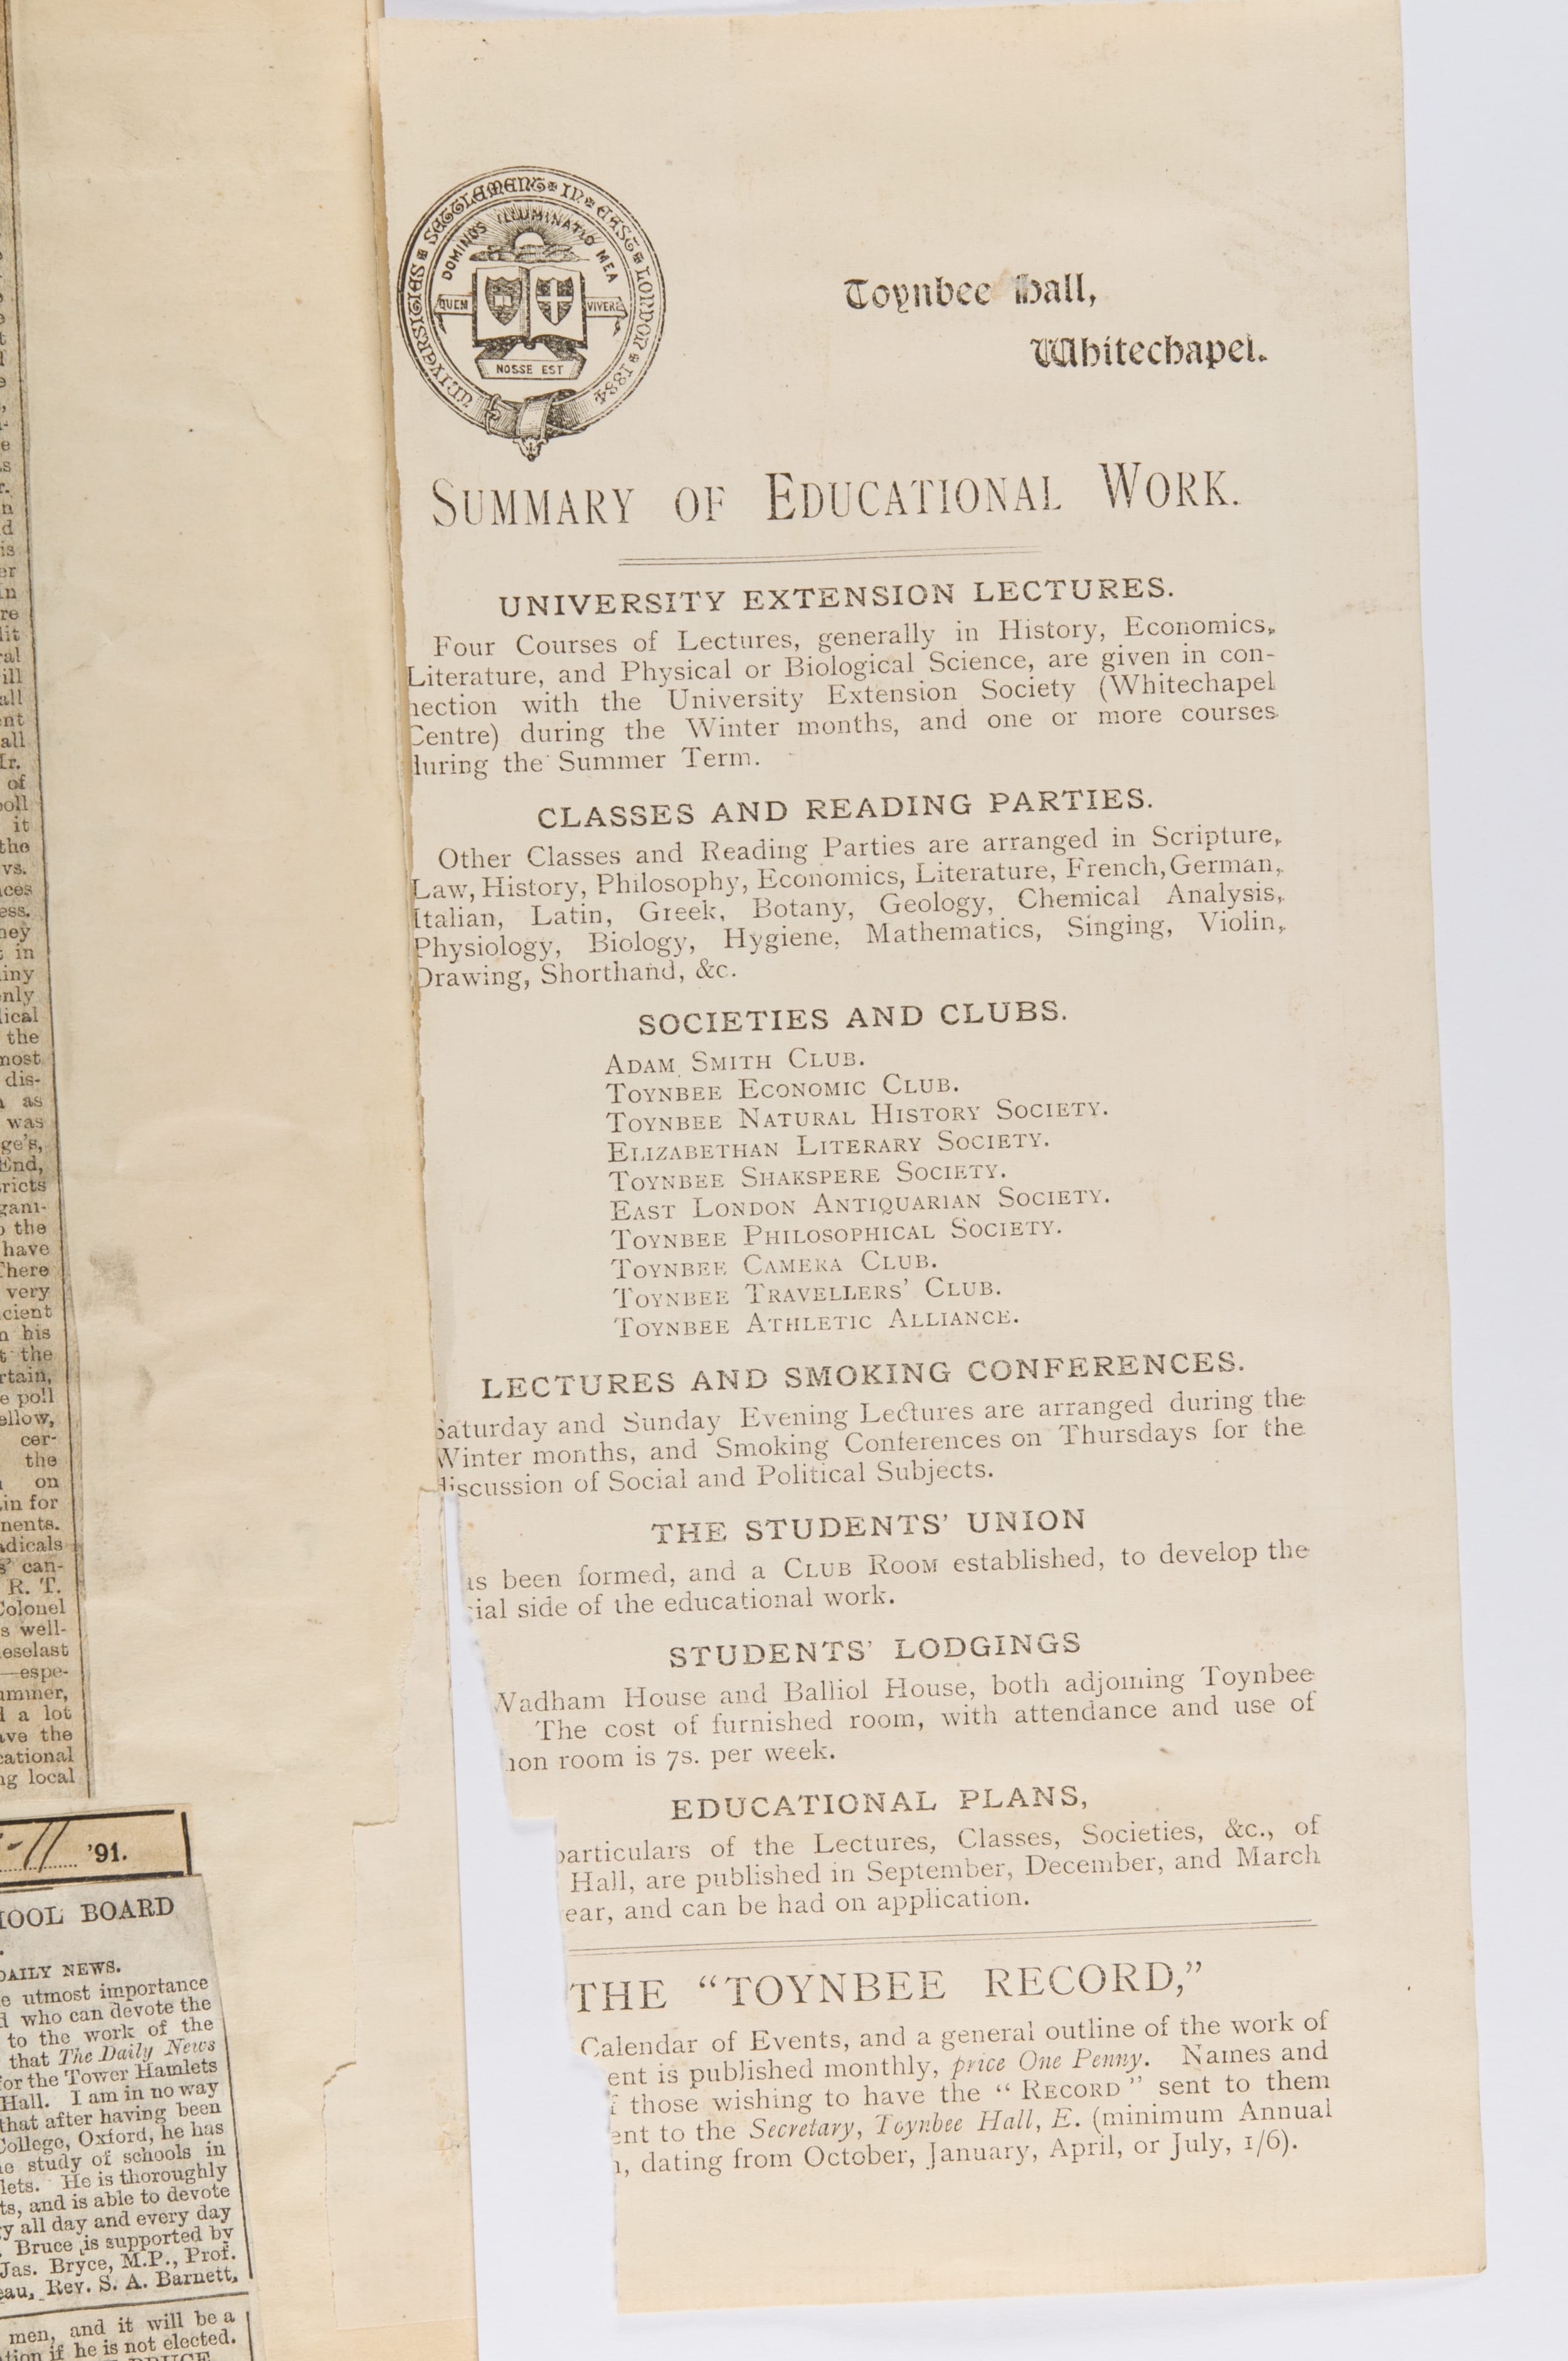 s
r.
n
d
is
er
in
re
lit
ral
ill
all
nt
all
Ir.
of
poll
it
the
vs.
ices
ess.
hey
in
iny
only
lical
the
most
dis-
as
was
ge's,
End,
ricts
gani-
o the
have
There
very
cient
n his
t the
rtain,
e poll
ellow,
cer-
the
on
in for
nents.
adicals
s' can-
R. T.
Colonel
s well-
eselast
—espe-
ummer,
d a lot
ave the
cational
ng local
-11 '91.
HOOL BOARD
DAILY NEWS.
e utmost importance
d who can devote the
to the work of the
that The Daily News
for the Tower Hamlets
Hall. I am in no way
that after having been
College, Oxford, he has
he study of schools in
lets. He is thoroughly
ts, and is able to devote
y all day and every day
Bruce is supported by
Jas. Bryce, M.P., Prof.
eau, Rev. S. A. Barnett,
men, and it will be a
tion if he is not elected.
UNIVERSITIES SETTLEMENT IN EAST LONDON 1884
DOMINUS ILLUMINATIO MEA
QUEM VIVERE
NOSSE EST
Toynbee Hall,
Whitechapel.
SUMMARY OF EDUCATIONAL WORK.
UNIVERSITY EXTENSION LECTURES.
Four Courses of Lectures, generally in History, Economics,
Literature, and Physical or Biological Science, are given in con-
nection with the University Extension Society (Whitechapel
Centre) during the Winter months, and one or more courses
during the Summer Term.
CLASSES AND READING PARTIES.
Other Classes and Reading Parties are arranged in Scripture,
Law, History, Philosophy, Economics, Literature, French, German,
Italian, Latin, Greek, Botany, Geology, Chemical Analysis,
Physiology, Biology, Hygiene, Mathematics, Singing, Violin,
Drawing, Shorthand, &c.
SOCIETIES AND CLUBS.
ADAM SMITH CLUB.
TOYNBEE ECONOMIC CLUB.
TOYNBEE NATURAL HISTORY SOCIETY.
ELIZABETHAN LITERARY SOCIETY.
TOYNBEE SHAKSPERE SOCIETY.
EAST LONDON ANTIQUARIAN SOCIETY.
TOYNBEE PHILOSOPHICAL SOCIETY.
TOYNBEE CAMERA CLUB.
TOYNBEE TRAVELLERS' CLUB.
TOYNBEE ATHLETIC ALLIANCE.
LECTURES AND SMOKING CONFERENCES.
Saturday and Sunday Evening Lectures are arranged during the
Winter months, and Smoking Conferences on Thursdays for the
discussion of Social and Political Subjects.
THE STUDENTS' UNION
as been formed, and a CLUB ROOM established, to develop the
cial side of the educational work.
STUDENTS' LODGINGS
Wadham House and Balliol House, both adjoining Toynbee
The cost of furnished room, with attendance and use of
mon room is 7s. per week.
EDUCATIONAL PLANS,
particulars of the Lectures, Classes, Societies, &c., of
Hall, are published in September, December, and March
ear, and can be had on application.
THE "TOYNBEE RECORD,"
Calendar of Events, and a general outline of the work of
ent is published monthly, price One Penny. Names and
f those wishing to have the "RECORD" sent to them
ent to the Secretary, Toynbee Hall, E. (minimum Annual
n, dating from October, January, April, or July, 1/6).